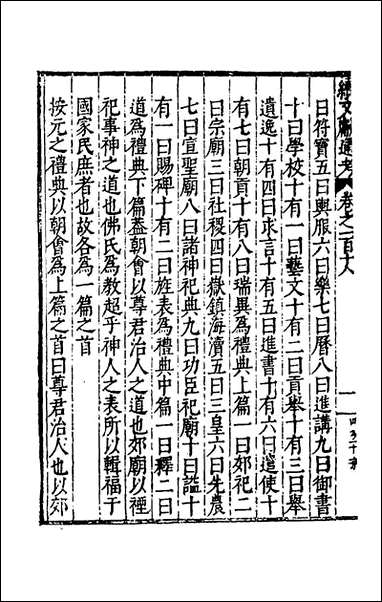 續文獻通考 卷之一百十八
曰符寶五曰輿服六曰樂七曰曆八曰進講九曰御書
十曰學校十有一曰藝文十有二曰貢舉十有三曰舉
遺逸十有四曰求言十有五曰進書十有六曰遣使十
有七曰朝貢十有八曰瑞異爲禮典上篇一曰郊祀二
曰宗廟三曰社稷四曰嶽鎮海瀆五曰三皇六曰先農
七曰宣聖廟八曰諸神祀典九曰功臣祀廟十曰諡十
有一曰賜碑十有二曰旌表爲禮典中篇一曰釋二曰
道爲禮典下篇蓋朝會以尊君治人之道也郊廟以禋
祀事神之道也佛氏爲教超乎神人之表所以輯福于
國家民庶者也故各爲一篇之首
按元之禮典以朝會爲上篇之首曰尊君治人也以郊